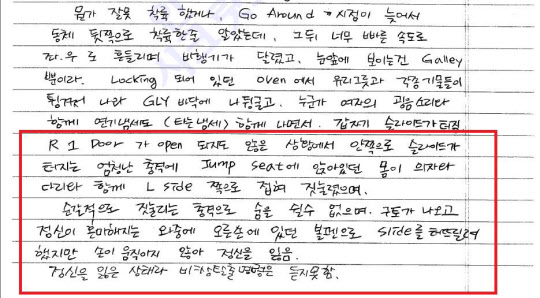 뭔가 잘못 착륙 했거나, Go Around 시점이 늦어서
동체 뒷쪽으로 착륙한줄 알았는데, 그뒤 너무 빠른 속도로
좌.우로 흔들리며 비행기가 달렸고, 눈앞에 보이는건 Galley
뿐이라. Locking 되어 있던 oven 에서 유리그릇과 각종기물들이
튕겨져 나와 GLY 바닥에 나뒹굴고, 누군가 여자의 괴음소리와
함께 연기냄새도 (타는냄새) 함께 나면서. 갑자기 슬라이드가 터짐.
R 1 Door 가 open 되지도 않은 상황에서 안쪽으로 슬라이드가
터지는 엄청난 충격에 Jump seat에 앉아있던 몸이 의자와
다리와 함께 L side 쪽으로 접혀 짓눌렸으며.
순간적으로 짓눌리는 충격으로 숨을 쉴수 없으며. 구토가 나오고
정신이 혼미해지는 와중에 오른손에 있던 볼펜으로 slide를 터뜨릴려
했지만 손이 움직이지 않아 정신을 잃음.
정신을 잃은 상태라 비상탈출명령은 듣지못함.